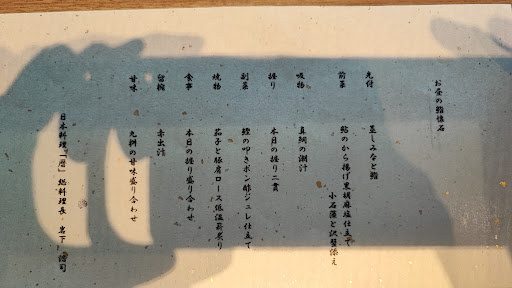 お昼の鮨懐石
先付
蒸しみなと鮨
前菜
鮎のから揚げ黒胡麻塩仕立て
小石藻と沢蟹添え
吸物
真鯛の潮汁
握り
本日の握り二貫
副菜
鰹の叩きポン酢ジュレ仕立て
焼物
茄子と豚肩ロース低温蒸炙り
食事
本日の握り盛り合わせ
留椀
赤出汁
甘味
九桝の甘味盛り合わせ
日本料理「暦」総料理長 岩下 浩司